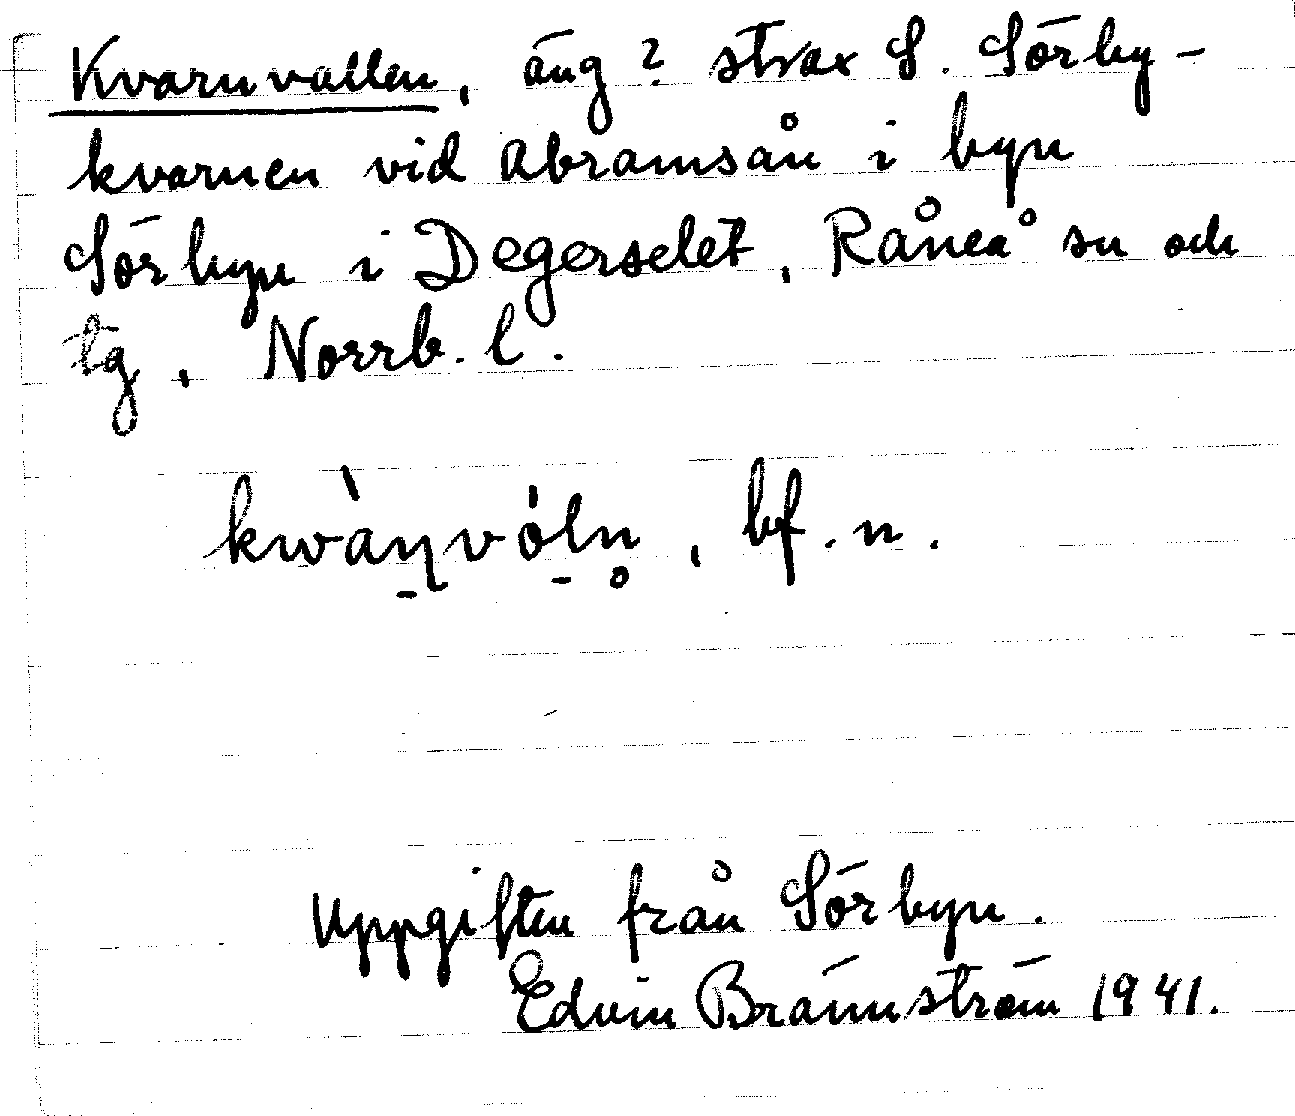 Kvarnvallen, äng? strax S. Sörby-
kvarnen vid Abramsån i byn
Sörbyn i Degerselet, Råneå sn och
tg, Norrb. l.
kwàṇvóln̥, bf. n.
Uppgiften från Sörbyn.
Edvin Brännström 1941.